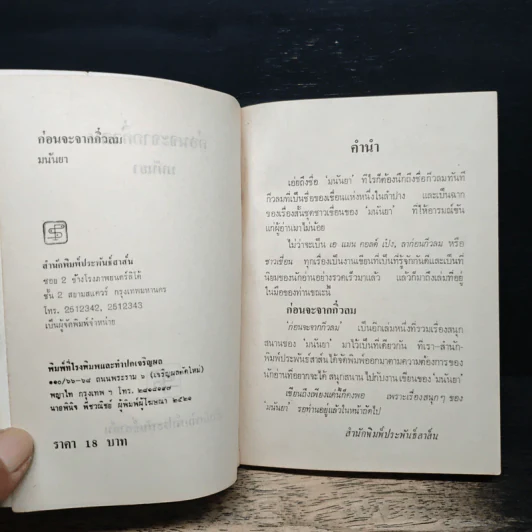 ก่อนจะจากกิ่วลม
มนันยา
สำนักพิมพ์ประพันธ์สาส์น
ซอย 2 ข้างโรงภาพยนตร์ลิโด้
ชั้น 2 สยามสแควร์ กรุงเทพมหานคร
โทร. 2512342, 2512343
เป็นผู้จัดพิมพ์จำหน่าย
พิมพ์ที่โรงพิมพ์และทำปกเจริญผล
๑๑๐/๖๖-๖๘ ถนนพระราม ๖ (เจริญผลตัดใหม่)
พญาไท กรุงเทพ ฯ โทร.
นายพินิจ ผู้พิมพ์ผู้โฆษณา ๒๕๒๑
ราคา 18 บาท
คำนำ
เอ่ยถึงชื่อ 'มนันยา' ทีไรก็ต้องนึกถึงชื่อกิ่วลมทันที
กิ่วลมที่เป็นชื่อของเขื่อนแห่งหนึ่งในลำปาง และเป็นฉาก
ของเรื่องสั้นชุดชาวเขื่อนของ 'มนันยา' ที่ให้อารมณ์ขัน
แก่ผู้อ่านมาไม่น้อย
ไม่ว่าจะเป็น เอ แมน คอลด์ เป๋ง, ลาก่อนกิ่วลม หรือ
ชาวเขื่อน ทุกเรื่องเป็นงานเขียนที่เป็นที่รู้จักกันดีและเป็นที่
นิยมของนักอ่านอย่างรวดเร็วมาแล้ว แล้วก็มาถึงเล่มที่อยู่
ในมือของท่านขณะนี้
ก่อนจะจากกิ่วลม
'ก่อนจะจากกิ่วลม' เป็นอีกเล่มหนึ่งที่รวมเรื่องสนุก
สนานของ 'มนันยา' มาไว้เป็นที่เดียวกัน ที่เรา-สำนัก-
พิมพ์ประพันธ์สาส์น ได้จัดพิมพ์ออกมาตามความต้องการของ
นักอ่านที่อยากจะได้ สนุกสนาน ไปกับงานเขียนของ 'มนันยา'
เขียนถึงเพียงแค่นี้ก็คงพอ เพราะเรื่องสนุก ๆ ของ
'มนันยา' รอท่านอยู่แล้วในหน้าถัดไป
สำนักพิมพ์ประพันธ์สาส์น